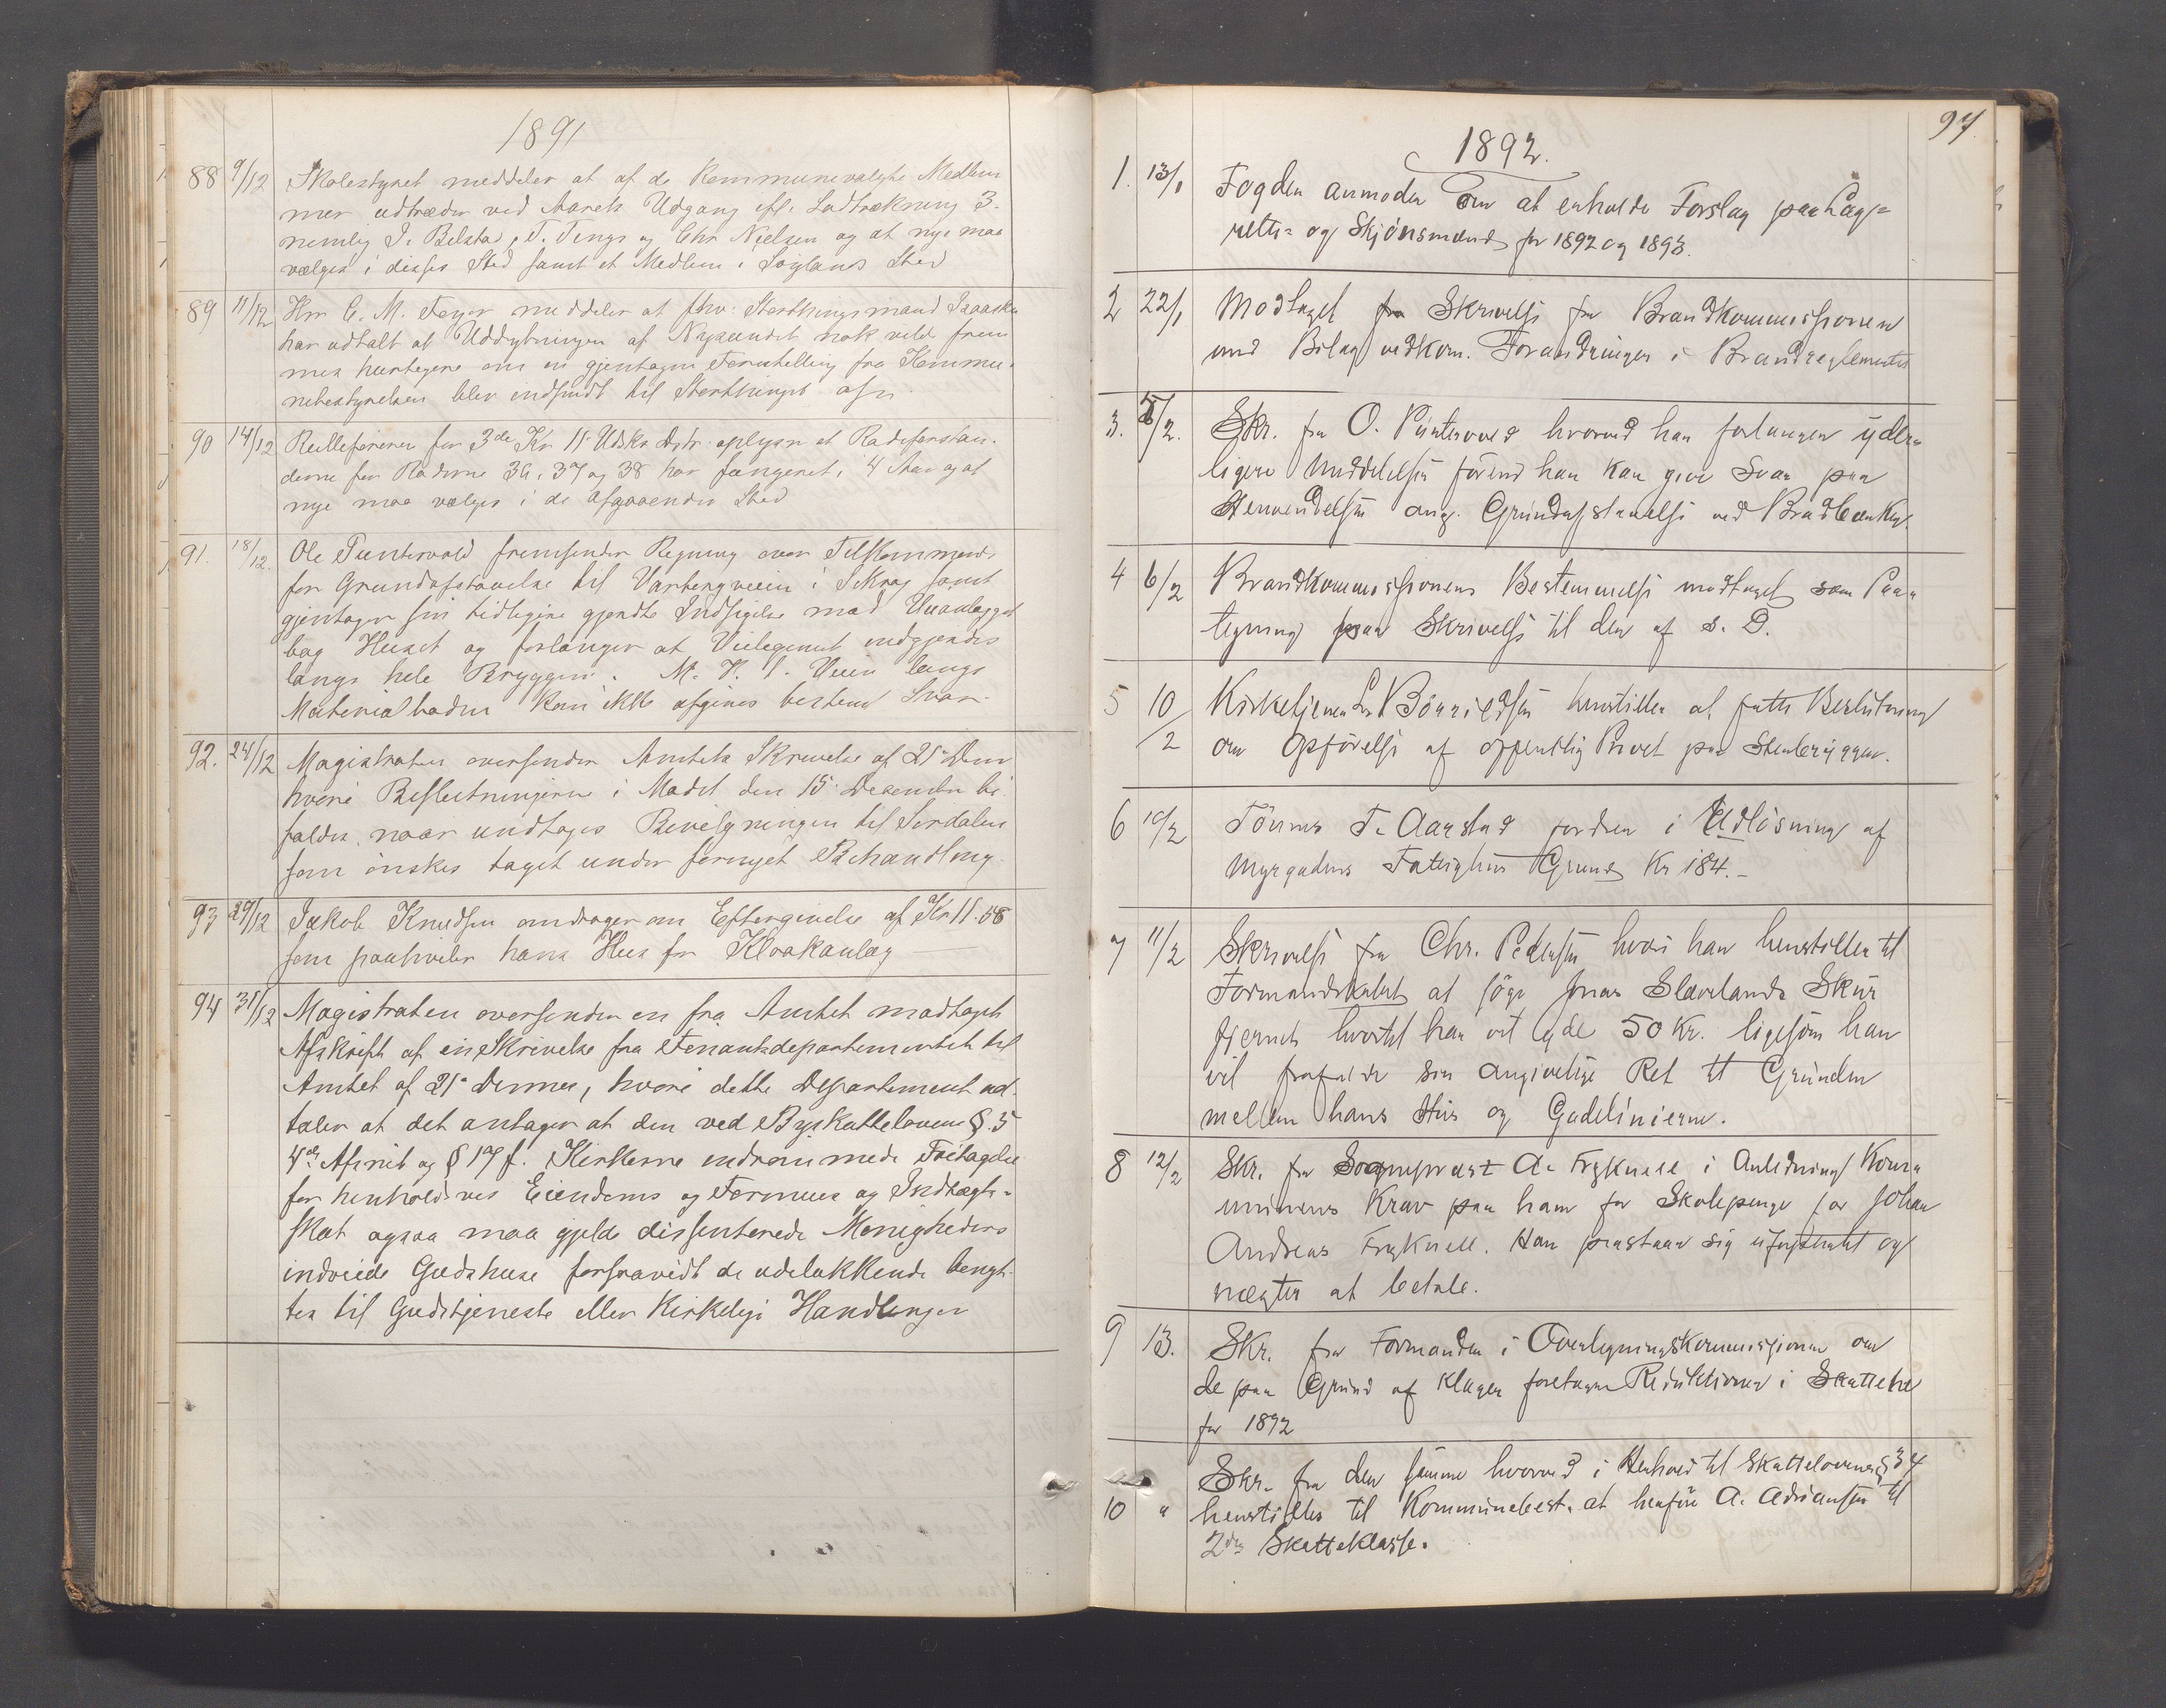 1891
88 9/12 Skolestyret meddeler at af de Kommunevalgte Medlem
mer udtræder ved Aarets Udgang efl. Lodtrækning 3.
nemlig J. Belstad, T. Tengs og Chr Nielsen og at nye maa
vælges i disses Sted samt et Medlem i Søylands Sted
89 11/12 Hrr C. M. Feyer meddeler at fhv. Storthingsmand
har udtalt at Uddybningen af Nysundet nok vilde frem
mes hurtigere om en gjentagen Forestilling fra Kommu-
nebestyrelsen blev indsendt til Storthinget
90 14/12 Rulleføreren for 3de Kr 11 Udsk. Dstr. oplyser at Rodeforstan-
derne for Roderne 36, 37 og 38 har fungeret i 4 Aar og at
nye maa vælges i de Afgaaendes Sted
91. 18/12. Ole Puntervold fremsender Regning over Tilkommende
for Grundafstaaelse til Varbergveien i Sokn samt
gjentager sin tidligere gjendte Indsigelse mod Veianlægget
bag Huset og forlanger at Veilegemet indgjerdes
langs hele Bryggen. M. H. t. Veien langs
Materialboden kan ikke afgives bestemt Svar.
92. 24/12 Magistraten oversender Amtets Skrivelse af 21 Dmr
hvori Beslutningerne i Mødet den 15 December bi
faldes, naar undtages Bevilgningen til Sirdalen
som ønskes taget under fornyet Behandling.
93 29/12 Jakob Knudsen andrager om Eftergivelse af Kr 11.58
som paahviler hans Hus for Kloakanlæg
94 31/12 Magistraten oversender en fra Amtet modtaget
Afskrift af en Skrivelse fra Finantsdepartementet til
Amtet af 21 Dennes, hvori dette Departement ud-
taler at det antager at den ved Byskatteloven §. 5
4de Afsnit og § 19 f. Kirkerne indrømmede Fritagelse
for henholdsvis Eiendoms og Formues og Indtægts-
skat ogsaa maa gjelde dissenterede Menigheders
indviede Gudshuse forsaavidt de udelukkende benyt-
tes til Gudstjeneste eller Kirkelige Handlinger
97.
1892.
1. 13/1 Fogden anmoder om at erholde Forslag paa Lag-
retts- og Skjønsmænd for 1892 og 1893.
2 22/1 Modtaget fra Skrivelse fra Brandkommissionen
med Bilag vedkom. Forandringer i Brandreglementet
3. 5/2. Skr. fra O. Puntervold hvorved han forlanger yder-
ligere Meddelelser førend han kan give Svar paa
Henvendelsen ang. Grundafstaaelse ved
4 6/2 Brandkommissionens Bestemmelse modtaget som Paa-
tegning paa Skrivelse til den af s. D.
5 10/2 Kirketjener L. Baardsen henstiller at fatte Beslutning
om Opførelse af offentlig Privet paa Stenbryggen.
6 10/2 Tønnes T. Aarstad fordrer i Udløsning af
Myrgadens Fattighus Grund Kr 184.-
7 11/2 Skrivelse fra Chr. Pedersen hvori han henstiller til
Formandskabet at søge Jonas Slævelands Skur
fjernet hvortil han vil yde 50 Kr. ligesom han
vil frafalde sin angivelige Ret til Grunden
mellem hans Hus og Gadelinierne.
8 12/2 Skr. fra Sogneprest A. Fryknell i Anledning Kom-
munens Krav paa ham for Skolepenge for Johan
Andreas Fryknell. Han paastaar sig uforpligtet og
nægter at betale.
9 13. Skr. fra Formanden i Overligningskommissionen om
de paa Grund af Klager foretagne Reduktioner i Skatterne
for 1892
10 " Skr. fra den samme hvorved i Henhold til Skattelovens § 34
henstilles til Kommunebest. at henføre A. Adriansen til
2den Skatteklasse.